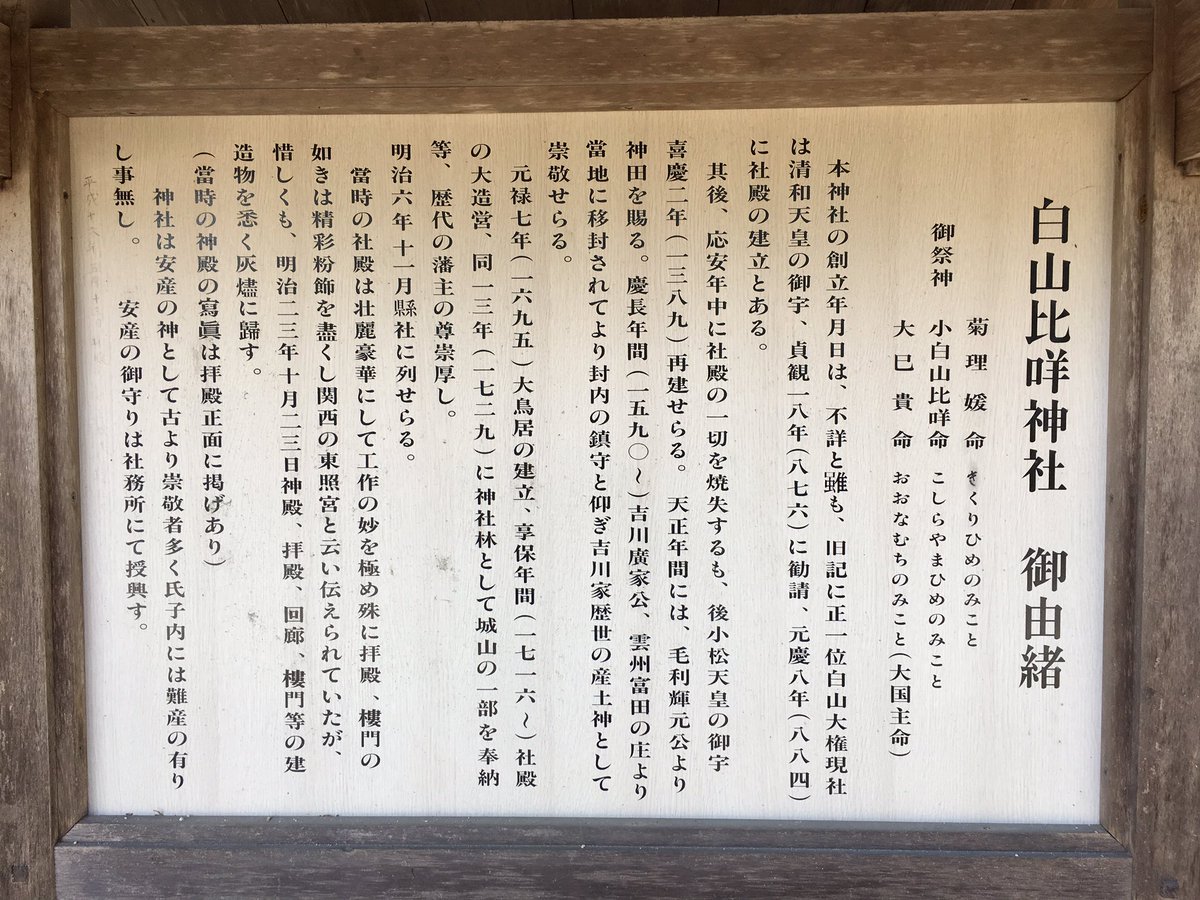 白山比咩神社 御由緒
菊理媛命 きくりひめのみこと
御祭神 小白山比咩命 こしらやまひめのみこと
大巳貴命 おおなむちのみこと(大国主命)
本神社の創立年月日は、不詳と雖も、旧記に正一位白山大権現社
は清和天皇の御宇、貞観一八年(八七六)に勧請、元慶八年(八八四)
に社殿の建立とある。
其後、応安年中に社殿の一切を焼失するも、後小松天皇の御宇
喜慶二年(一三八九)再建せらる。天正年間には、毛利輝元公より
神田を賜る。慶長年間(一五九〇～)吉川廣家公、雲州富田の庄より
當地に移封されてより封内の鎮守と仰ぎ吉川家歴世の産土神として
崇敬せらる。
元禄七年(一六九五)大鳥居の建立、享保年間(一七一六～)社殿
の大造営、同一三年(一七二九)に神社林として城山の一部を奉納
等、歴代の藩主の尊崇厚し。
明治六年十一月縣社に列せらる。
當時の社殿は壮麗豪華にして工作の妙を極め殊に拝殿、樓門の
如きは精彩粉飾を盡くし関西の東照宮と云い伝えられていたが、
惜しくも、明治二三年十月二三日神殿、拝殿、回廊、樓門等の建
造物を悉く灰燼に歸す。
(當時の神殿の寫眞は拝殿正面に掲げあり)
神社は安産の神として古より崇敬者多く氏子内には難産の有り
し事無し。 安産の御守りは社務所にて授興す。